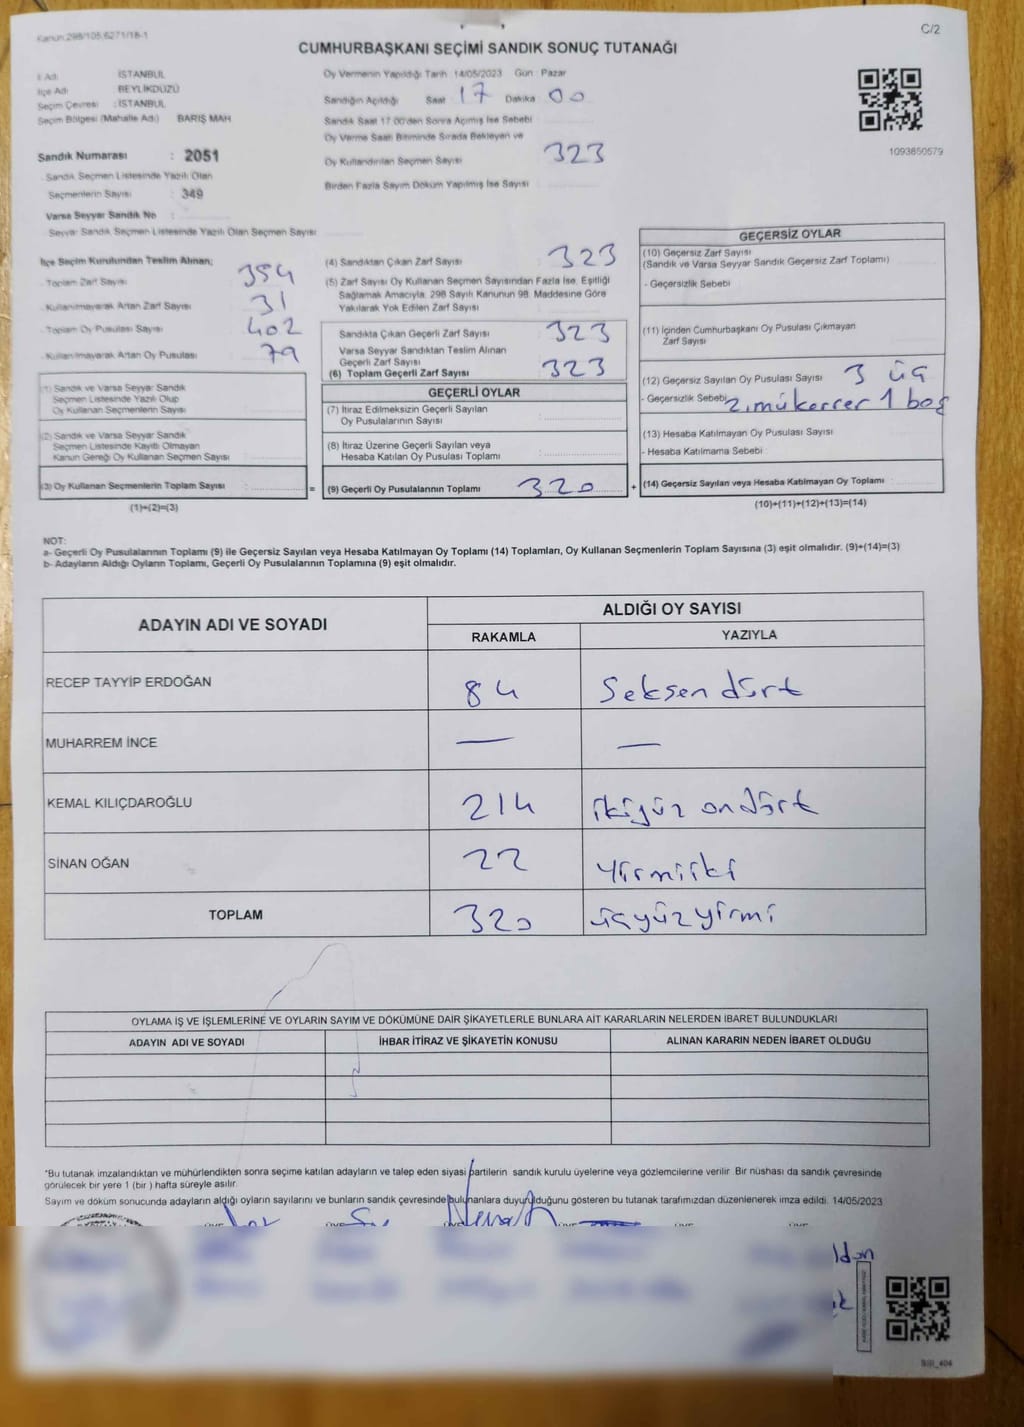 Kanun:298/105,6271/18-1
C/2
CUMHURBAŞKANI SEÇİMİ SANDIK SONUÇ TUTANAĞI
İl Adı : İSTANBUL
İlçe Adı : BEYLİKDÜZÜ
Seçim Çevresi : İSTANBUL
Seçim Bölgesi (Mahalle Adı) BARIŞ MAH
Sandık Numarası : 2051
Sandık Seçmen Listesinde Yazılı Olan
Seçmenlerin Sayısı : 349
Varsa Seyyar Sandık No :
Seyyar Sandık Seçmen Listesinde Yazılı Olan Seçmen Sayısı
Oy Vermenin Yapıldığı Tarih 14/05/2023 Gün Pazar
Sandığın Açıldığı Saat 17 Dakika 00
Sandık Saat 17.00'den Sonra Açılmış İse Sebebi
Oy Verme Saati Bitiminde Sırada Bekleyen ve
Oy Kullandırılan Seçmen Sayısı 323
Birden Fazla Sayım Döküm Yapılmış İse Sayısı
1093850579
İlçe Seçim Kurulundan Teslim Alınan;
Toplam Zarf Sayısı 354
Kullanılmayarak Artan Zarf Sayısı 31
Toplam Oy Pusulası Sayısı 402
Kullanılmayarak Artan Oy Pusulası 79
(1) Sandık ve Varsa Seyyar Sandık
Seçmen Listesinde Yazılı Olup
Oy Kullanan Seçmenlerin Sayısı :
(2) Sandık ve Varsa Seyyar Sandık
Seçmen Listesinde Kayıtlı Olmayan
Kanun Gereği Oy Kullanan Seçmen Sayısı :
(3) Oy Kullanan Seçmenlerin Toplam Sayısı :
(1)+(2)=(3)
=
(4) Sandıktan Çıkan Zarf Sayısı : 323
(5) Zarf Sayısı Oy Kullanan Seçmen Sayısından Fazla İse, Eşitliği
Sağlamak Amacıyla, 298 Sayılı Kanunun 98. Maddesine Göre
Yakılarak Yok Edilen Zarf Sayısı :
Sandıkta Çıkan Geçerli Zarf Sayısı : 323
Varsa Seyyar Sandıktan Teslim Alınan
Geçerli Zarf Sayısı :
(6) Toplam Geçerli Zarf Sayısı : 323
GEÇERLİ OYLAR
(7) İtiraz Edilmeksizin Geçerli Sayılan
Oy Pusulalarının Sayısı :
(8) İtiraz Üzerine Geçerli Sayılan veya
Hesaba Katılan Oy Pusulası Toplamı :
(9) Geçerli Oy Pusulalarının Toplamı : 320
+
GEÇERSİZ OYLAR
(10) Geçersiz Zarf Sayısı
(Sandık ve Varsa Seyyar Sandık Geçersiz Zarf Toplamı) :
- Geçersizlik Sebebi :
(11) İçinden Cumhurbaşkanı Oy Pusulası Çıkmayan
Zarf Sayısı :
(12) Geçersiz Sayılan Oy Pusulası Sayısı : 3 üç
- Geçersizlik Sebebi 2.mükerrer 1 boş
(13) Hesaba Katılmayan Oy Pusulası Sayısı :
- Hesaba Katılmama Sebebi :
(14) Geçersiz Sayılan veya Hesaba Katılmayan Oy Toplamı :
(10)+(11)+(12)+(13)=(14)
NOT:
a- Geçerli Oy Pusulalarının Toplamı (9) ile Geçersiz Sayılan veya Hesaba Katılmayan Oy Toplamı (14) Toplamları, Oy Kullanan Seçmenlerin Toplam Sayısına (3) eşit olmalıdır. (9)+(14)=(3)
b- Adayların Aldığı Oyların Toplamı, Geçerli Oy Pusulalarının Toplamına (9) eşit olmalıdır.
ADAYIN ADI VE SOYADI
ALDIĞI OY SAYISI
RAKAMLA YAZIYLA
RECEP TAYYİP ERDOĞAN 84 Seksen dört
MUHARREM İNCE — —
KEMAL KILIÇDAROĞLU 214 ikiyüz ondört
SİNAN OĞAN 22 Yirmiiki
TOPLAM 320 üçyüzyirmi
OYLAMA İŞ VE İŞLEMLERİNE VE OYLARIN SAYIM VE DÖKÜMÜNE DAİR ŞİKAYETLERLE BUNLARA AİT KARARLARIN NELERDEN İBARET BULUNDUKLARI
ADAYIN ADI VE SOYADI İHBAR İTİRAZ VE ŞİKAYETİN KONUSU ALINAN KARARIN NEDEN İBARET OLDUĞU
*Bu tutanak imzalandıktan ve mühürlendikten sonra seçime katılan adayların ve talep eden siyasi partilerin sandık kurulu üyelerine veya gözlemcilerine verilir. Bir nüshası da sandık çevresinde
görülecek bir yere 1 (bir ) hafta süreyle asılır.
Sayım ve döküm sonucunda adayların aldığı oyların sayılarını ve bunların sandık çevresinde bulunanlara duyurulduğunu gösteren bu tutanak tarafımızdan düzenlenerek imza edildi. 14/05/2023